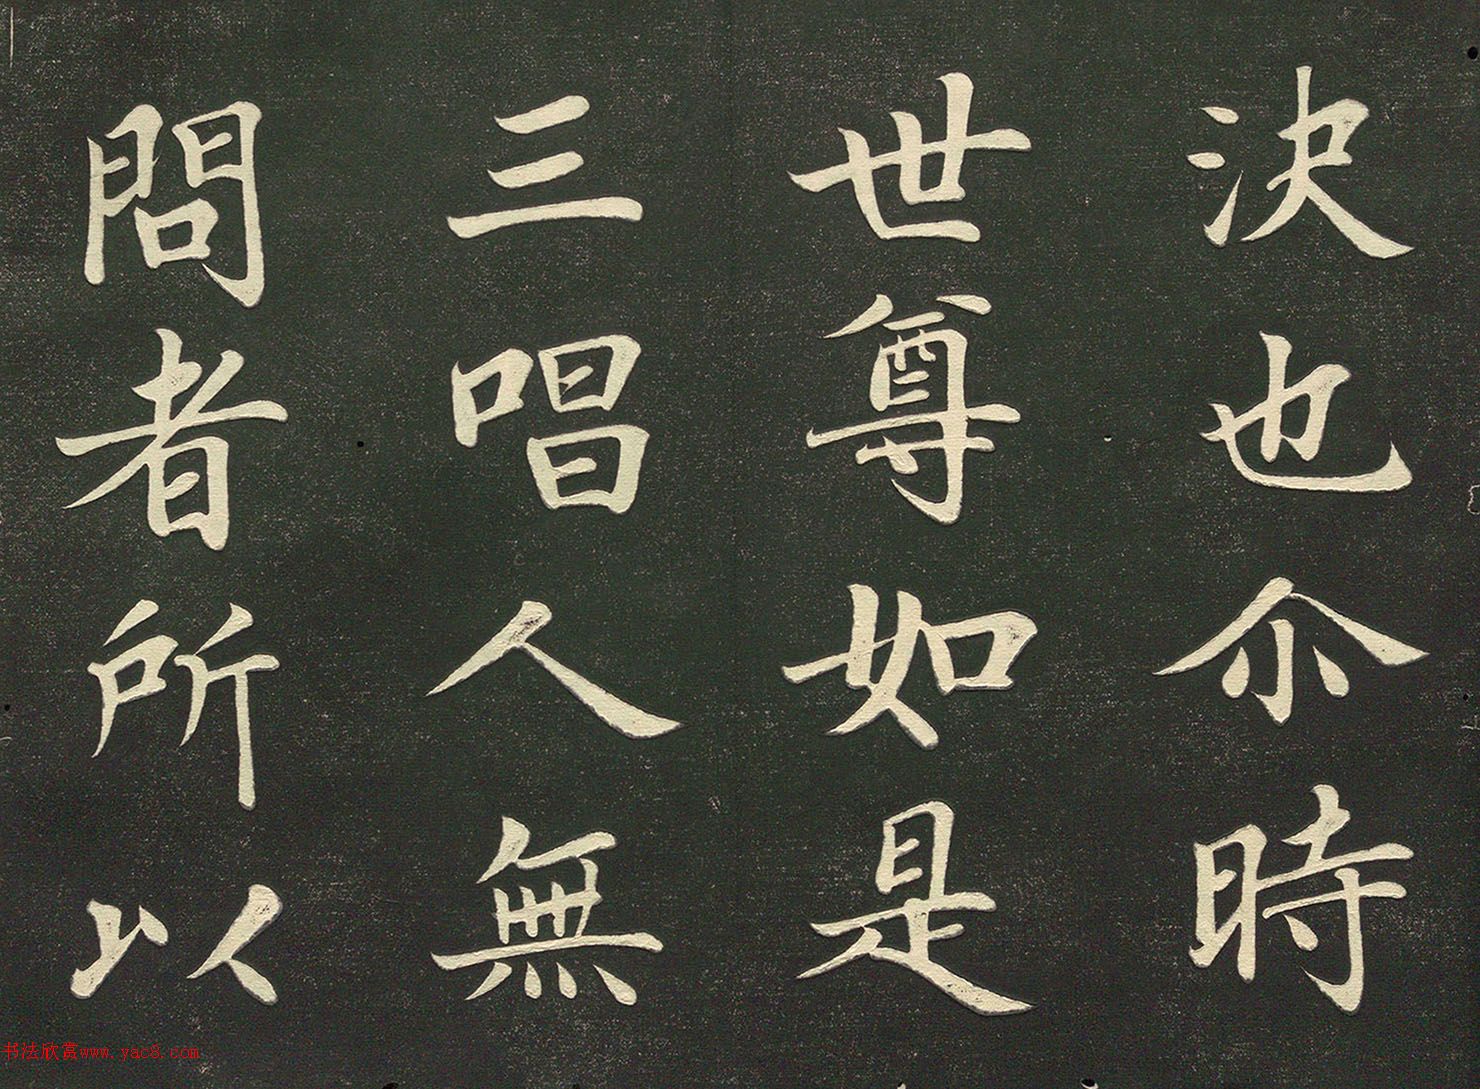 決也尒時
世尊如是
三唱人無
問者所以
书法欣赏www.yac8.com